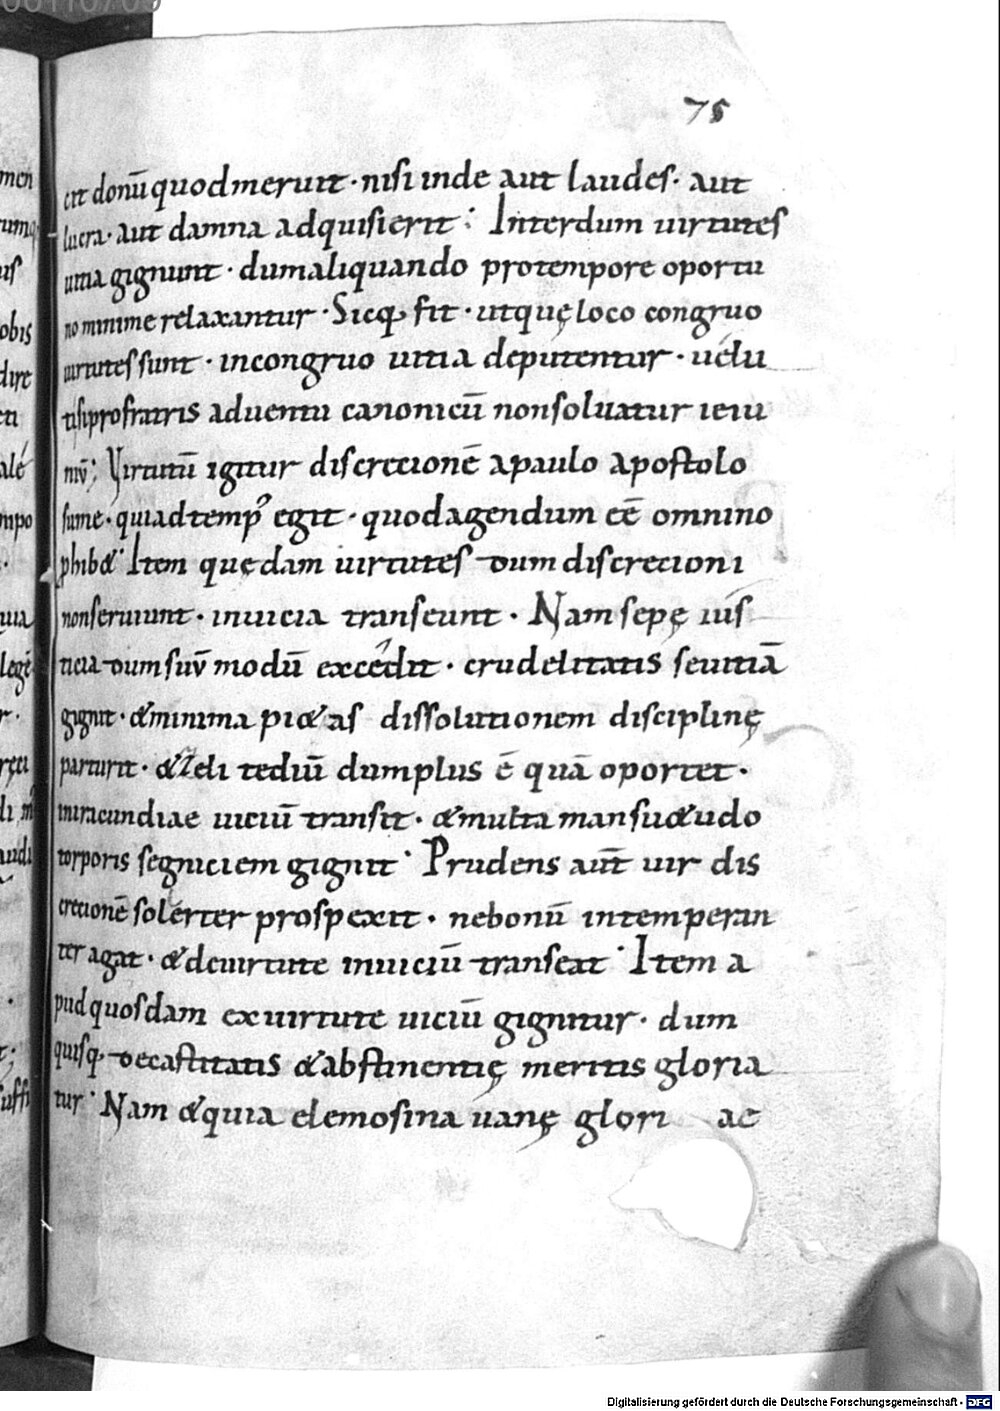 75
ert donū quod meruit · nisi inde aut laudes · aut
lucra · aut damna adquisierit : Interdum uirtutes
uitia gignunt · dum aliquando pro tempore oportu
no minime relaxantur · Sicq; fit · ut quę loco congruo
uirtutes sunt · incongruo uitia deputentur · uelu
ti si pro fratris aduentu canonicū non soluatur ieiu
niū ; Virtutū igitur discrecionē a paulo apostolo
sume · qui ad temp' egit · quod agendum eē omnino
phib& · Item quędam uirtutes dum discrecioni
non seruiunt · in uicia transeunt · Nam sepę ius
ticia dum suū modū excedit · crudelitatis seuitiā
gignit · & minima pi&as dissolutionem disciplinę
parturit · & zeli tediū dum plus ē quā oportet ·
in iracundiae uiciū transit · & multa mansu&udo
torporis segniciem gignit · Prudens aut̄ uir dis
crecionē solerter prospexit · ne bonū intemperan
ter agat · & de uirtute in uiciū transeat · Item a
pud quosdam ex uirtute uiciū gignitur · dum
quisq; de castitatis & abstinentię meritis gloria
tur · Nam & quia elemosina uanę glori ae
Digitalisierung gefördert durch die Deutsche Forschungsgemeinschaft - DFG